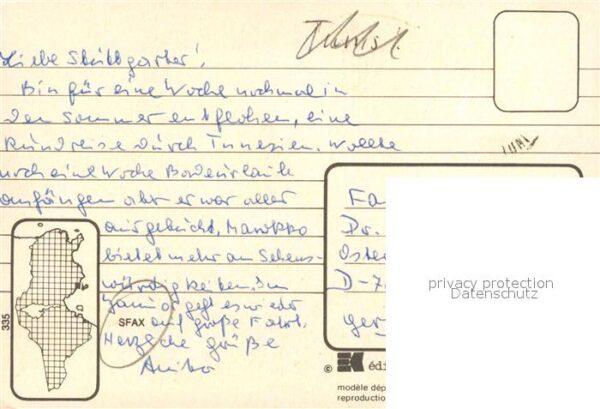 Liebe Stuttgarter!
Bin für eine Woche nochmal in
den Sommer entflohen, eine
Rundreise durch Tunesien. Wollte
noch eine Woche Badeurlaub
anhängen aber es war alles
ausgebucht, Marokko
bietet mehr an Sehens-
würdigkeiten. Im
geht es wieder
auf große Fahrt.
Herzliche Grüße
335
SFAX
Fa
Dr.
Oster
D-7
Ger
privacy protection
Datenschutz
© EK édi
modèle dép
reproduction